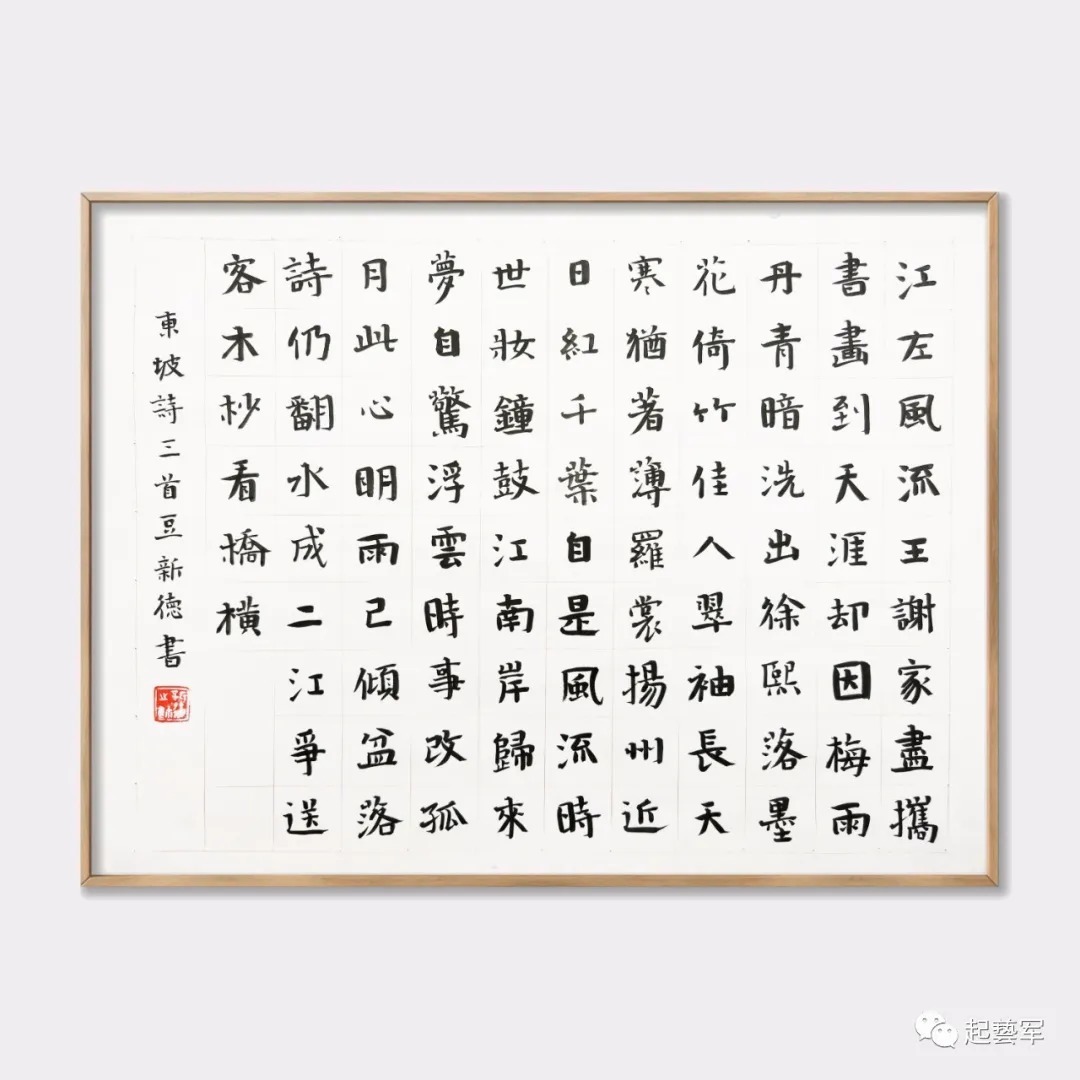 江左風流王謝家盡攜
書畫到天涯却因梅雨
丹青暗洗出徐熙落墨
花倚竹佳人翠袖長天
寒猶著薄羅裳揚州近
日紅千葉自是風流時
世妝鐘鼓江南岸歸來
夢自驚浮雲時事改孤
月此心明雨已傾盆落
詩仍翻水成二江爭送
客木杪看橋橫
東坡詩三首豆新德書
起藝军